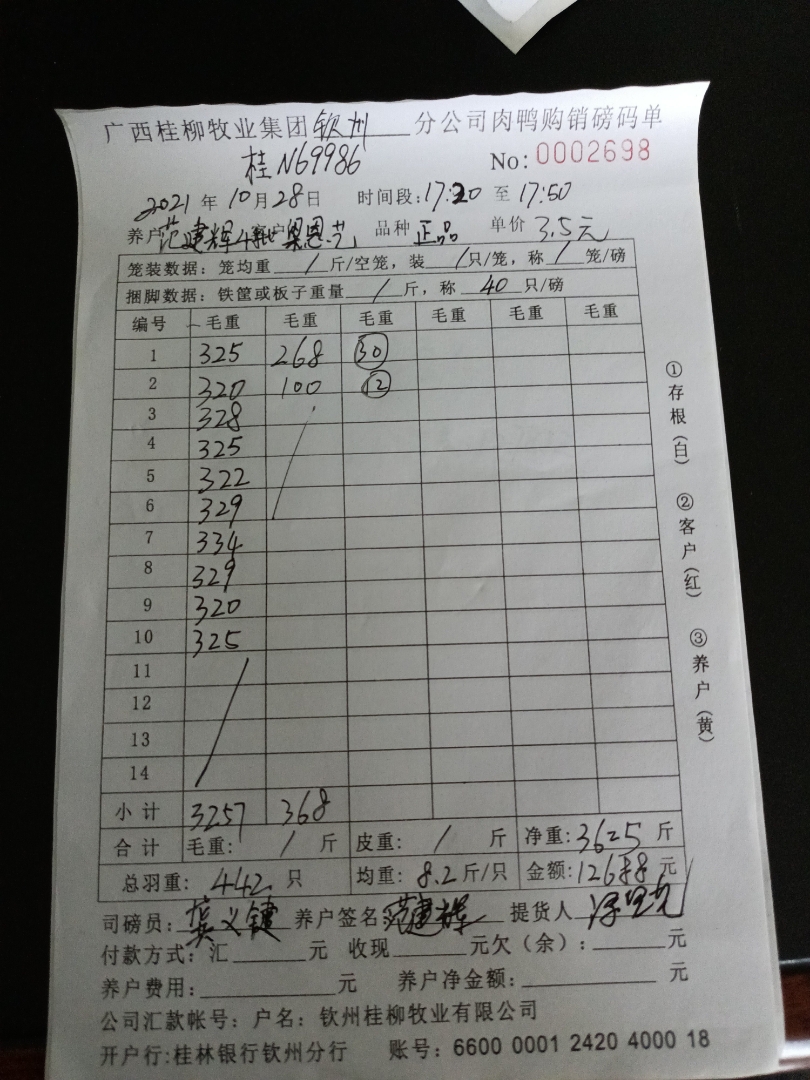 广西桂柳牧业集团 钦州 分公司肉鸭购销磅码单
桂N69986 No: 0002698
2021 年 10 月 28 日 时间段: 17:20 至 17:50
养户 范建辉 客户 梁恩艺 品种 正品 单价 3.5元
笼装数据: 笼均重 / 斤/空笼, 装 / 只/笼, 称 / 笼/磅
捆脚数据: 铁筐或板子重量 / 斤, 称 40 只/磅
编号 毛重 毛重 毛重 毛重 毛重 毛重
1 325 268 30
2 320 100 12
3 328
4 325
5 322
6 329
7 334
8 329
9 320
10 325
11
12
13
14
小计 3257 368
合计 毛重: / 斤 皮重: / 斤 净重: 3625 斤
总羽重: 442 只 均重: 8.2 斤/只 金额: 12688 元
司磅员: 龚义键 养户签名 范建辉 提货人
付款方式: 汇 元 收现 元欠(余): 元
养户费用: 元 养户净金额: 元
公司汇款帐号: 户名: 钦州桂柳牧业有限公司
开户行:桂林银行钦州分行 账号: 6600 0001 2420 4000 18
①存根(白) ②客户(红) ③养户(黄)